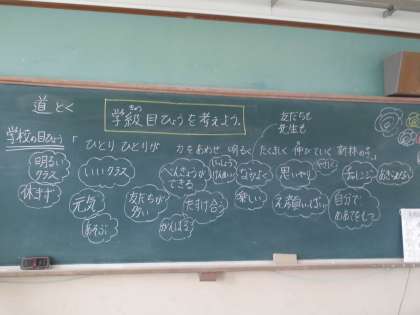 道とく
学級目ひょうを考えよう。
きゅう
友だちも
先生も
学校の目ひょう「ひとりひとりが 力をあわせ 明るく たくましく 伸びていく 新林の子」
明るい
クラス
いいクラス
べんきょうが
できる
なかよく
思いやり
あきらめない
休まず
元気
友だちが
多い
たすけ合う
楽しい
え顔いっぱい
自分で
めあてをもって
あそぶ
がんばる